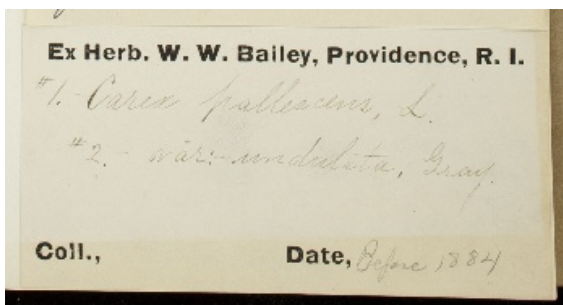 Ex Herb. W. W. Bailey, Providence, R. I.
#1. - Carex pallescens, L.
#2. - var:- undulata, Gray.
Coll., Date, Before 1884